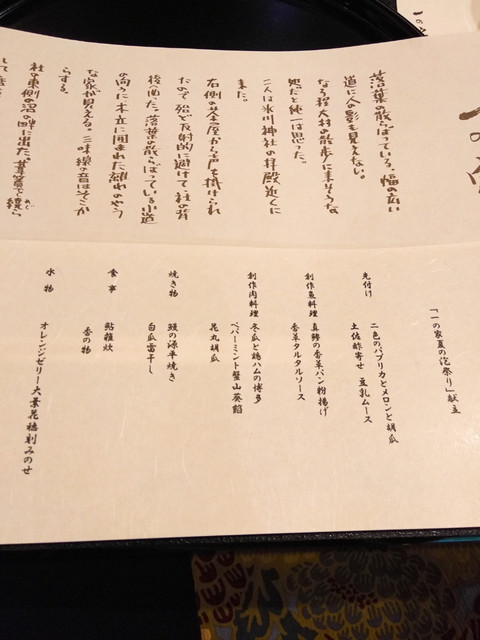 落葉の散らばっている、幅の広い
道に人の影も見えない。
なる程大村の散歩に来そうな
処だと純一は思った。
二人は氷川神社の拝殿近くに
来た。
右側の茶屋から声を掛けられ
たので殆ど反射的に避けて社の背
後へ出た。落葉の散らばっている小道
の向うに木立に囲まれた離れのやう
な家が見える。三味線の音はそこか
らする。
社の東側の沼の畔に出た。葦簀を繞ら
「一の家夏の泡祭り」献立
先付け
二色のパプリカとメロンと胡瓜
土佐酢寄せ 豆乳ムース
創作魚料理
真鯵の香草パン粉揚げ
香草タルタルソース
創作肉料理
冬瓜と鶏ハムの博多
ペパーミント蟹山葵餡
花丸胡瓜
焼き物
鰻の源平焼き
白瓜雷干し
食事
鮎雑炊
香の物
水物
オレンジゼリー大葉花穂刺みのせ